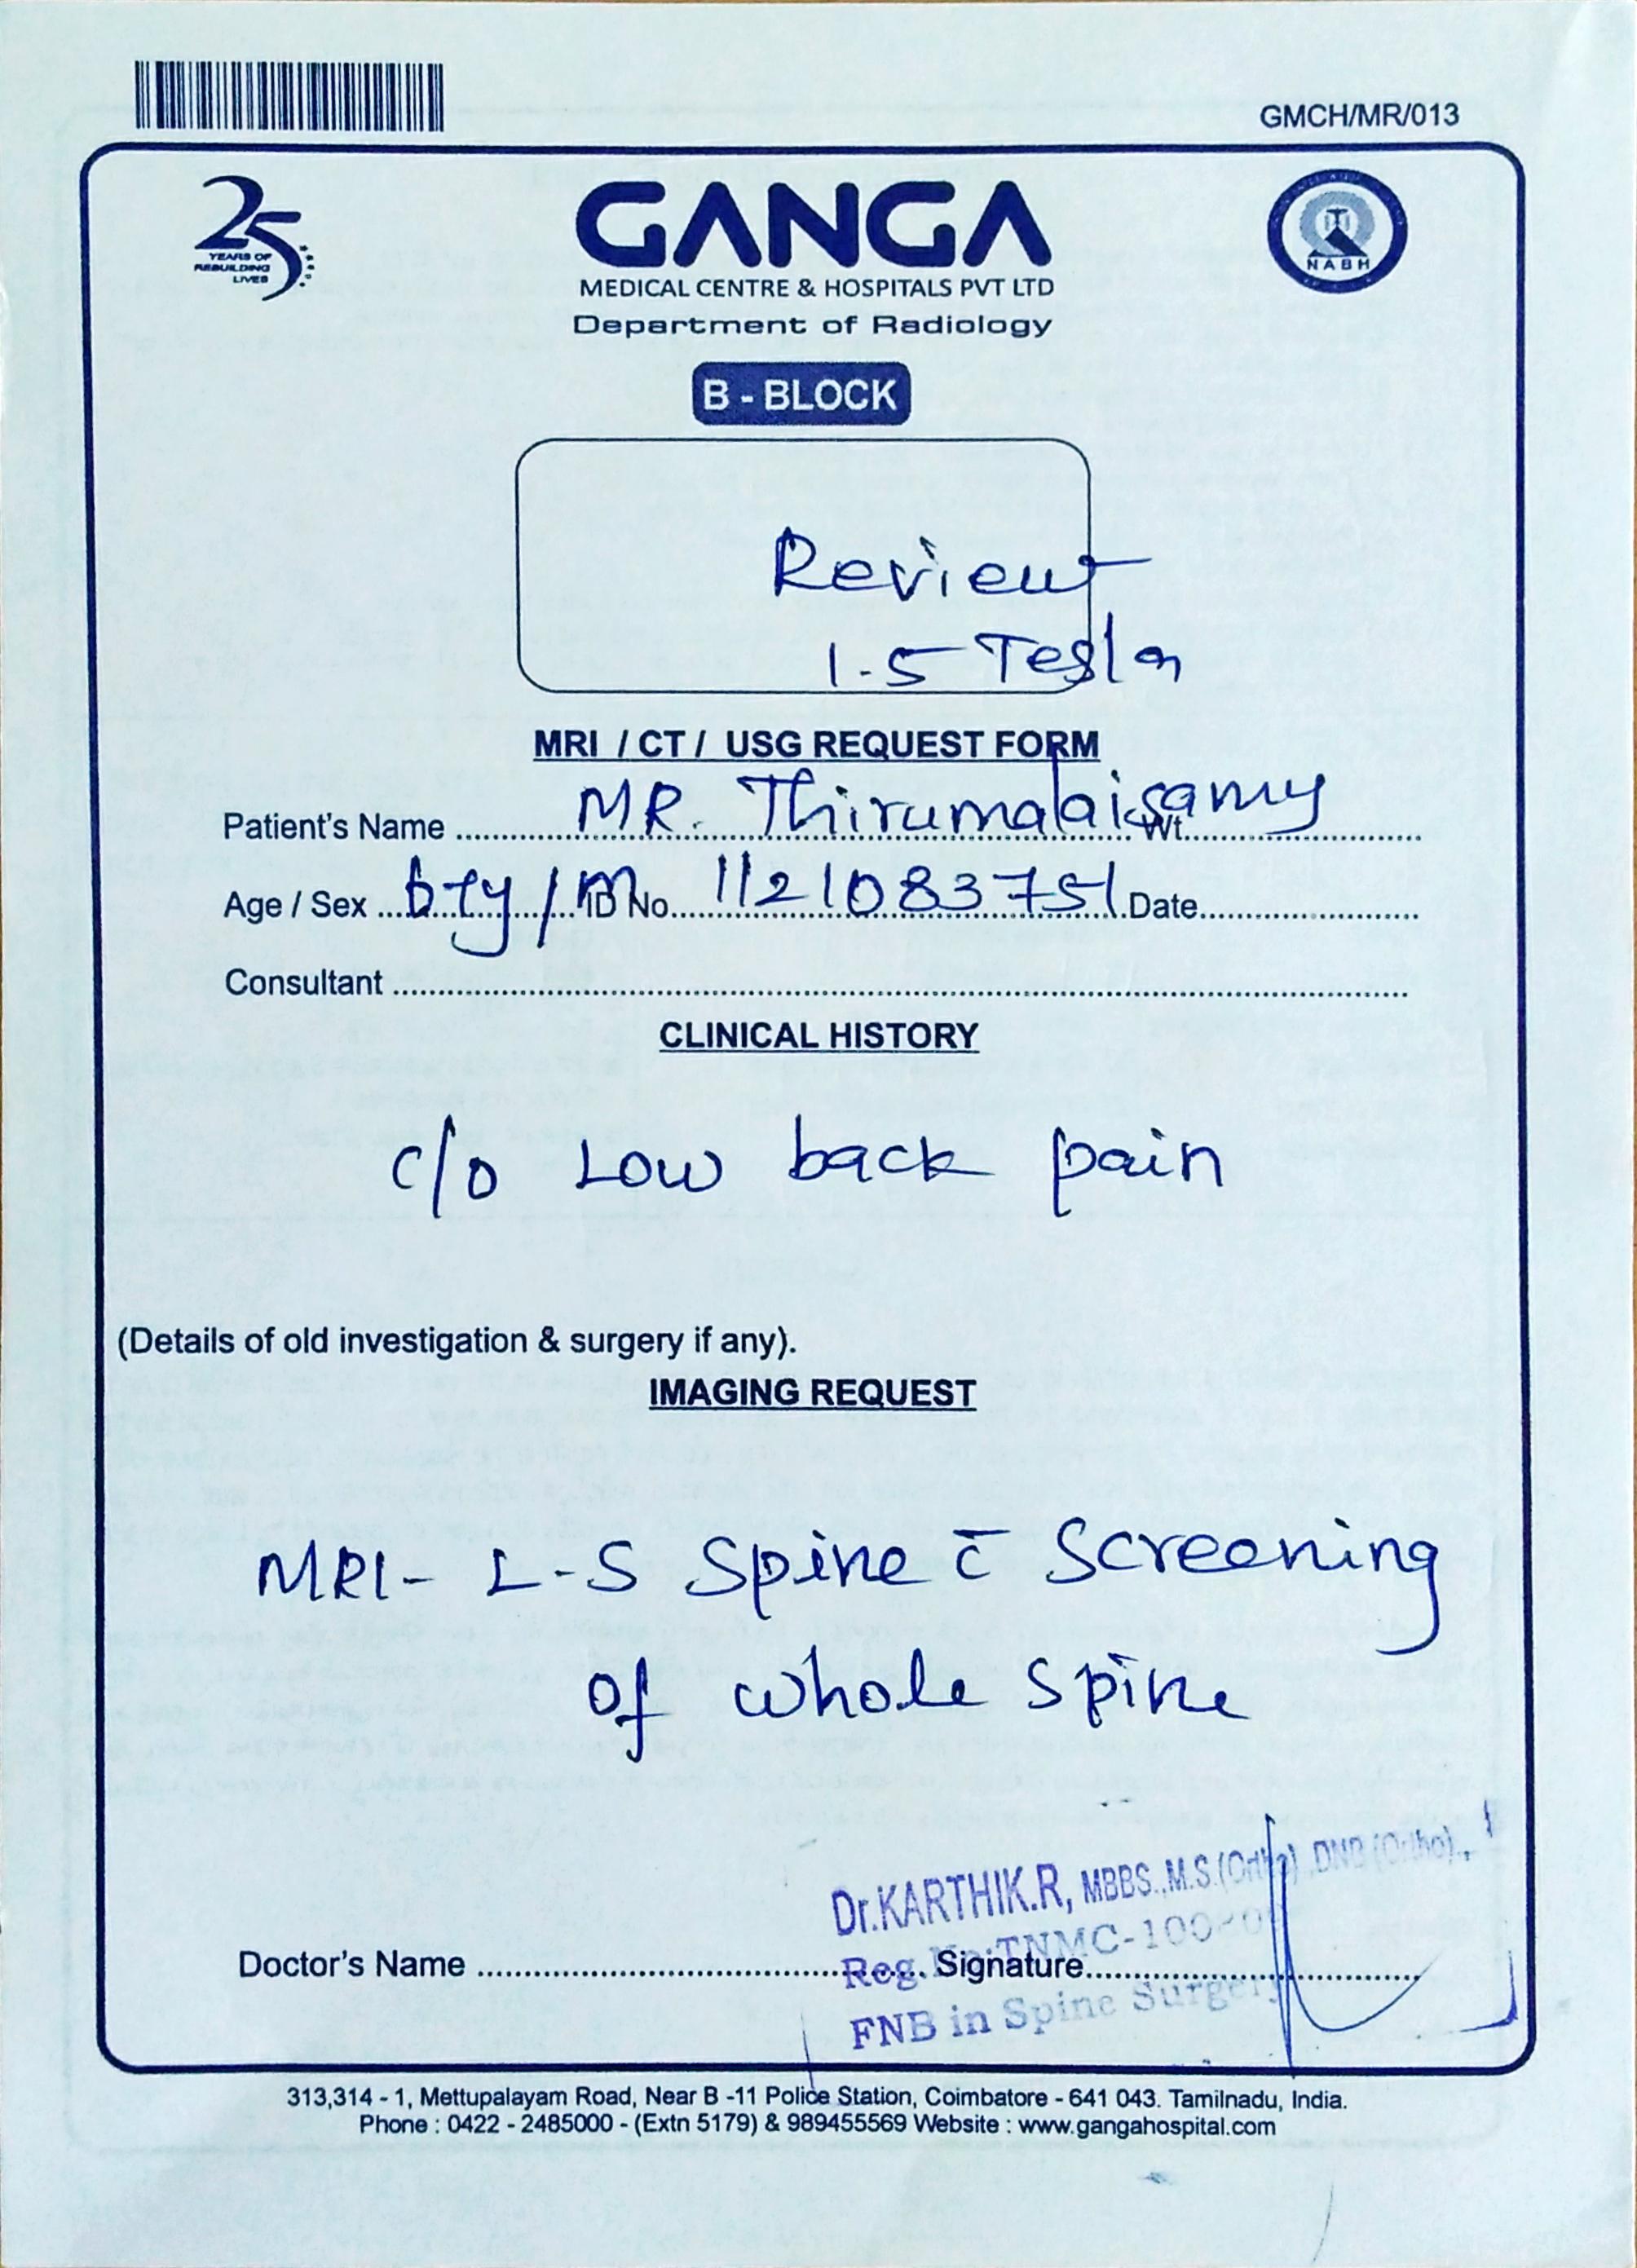 GMCH/MR/013
25
YEARS OF
REBUILDING
LIVES
GANGA
MEDICAL CENTRE & HOSPITALS PVT LTD
Department of Radiology
NABH
B - BLOCK
Review
1.5 Tesla
MRI / CT / USG REQUEST FORM
Patient's Name MR. Thirumalaisamy Wt
Age / Sex /M ID No. 112108375 Date
Consultant
CLINICAL HISTORY
c/o Low back pain
(Details of old investigation & surgery if any).
IMAGING REQUEST
MRI- L-S Spine c̄ Screening
of whole spine
Dr.KARTHIK.R, MBBS.,M.S.(Ortho),DNB (Ortho).,
Doctor's Name Reg.No:TNMC- Signature
FNB in Spine Surgery
313,314 - 1, Mettupalayam Road, Near B -11 Police Station, Coimbatore - 641 043. Tamilnadu, India.
Phone : 0422 - 2485000 - (Extn 5179) & 989455569 Website : www.gangahospital.com